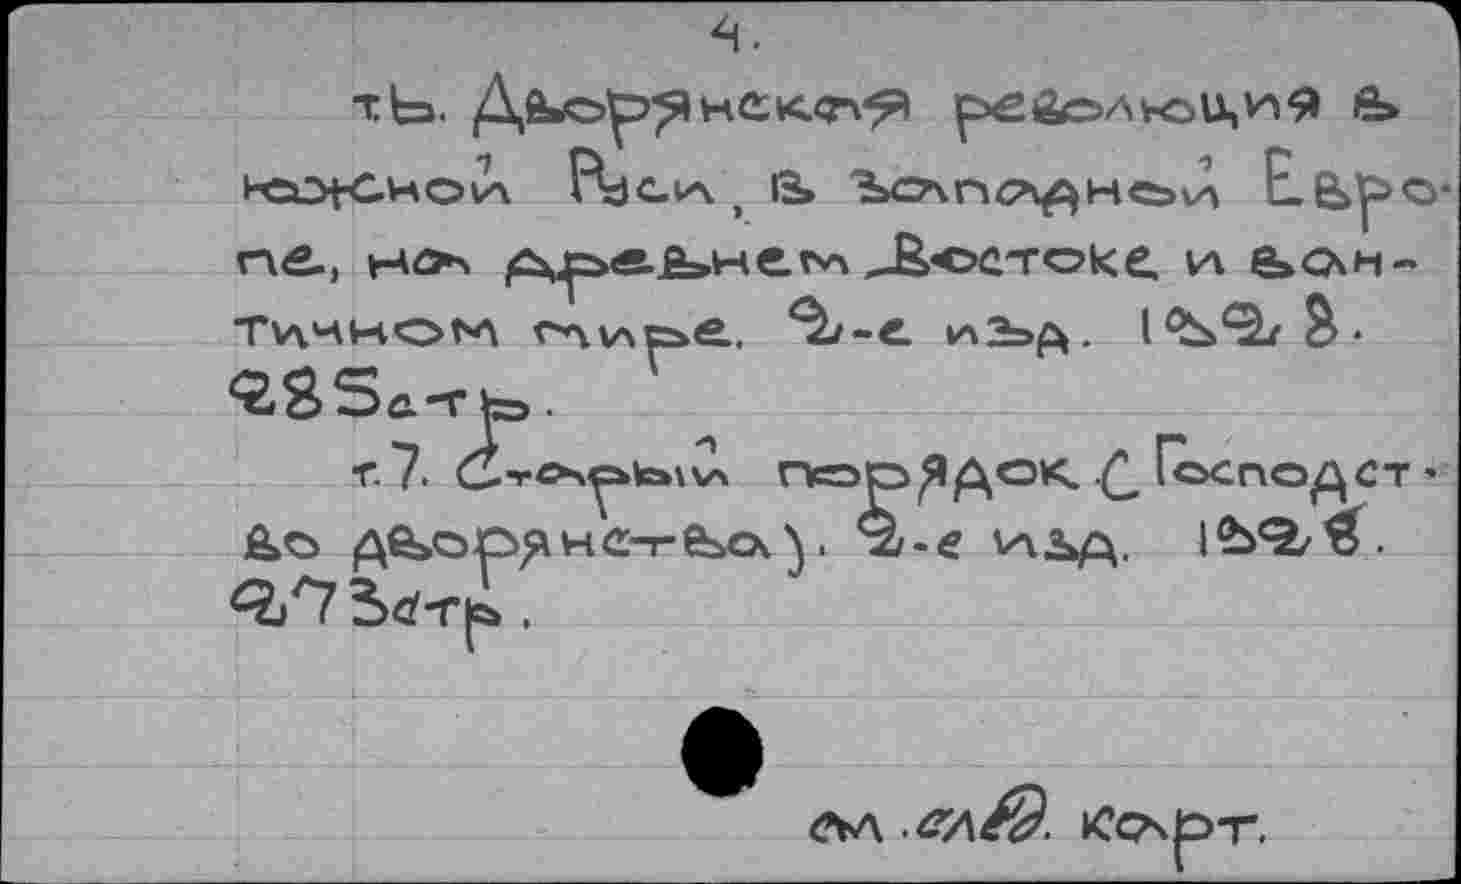 4.
т.6. Дворянская революция в
южной Руси, в западной Евро-
пе, на древнем Востоке и в ан-
тичном мире. 2-е изд. 1928.
285 стр.
т.7. Старый порядок (Господст-
во дворянства). 2-е изд. 1928.
273 стр.
см. след. карт.